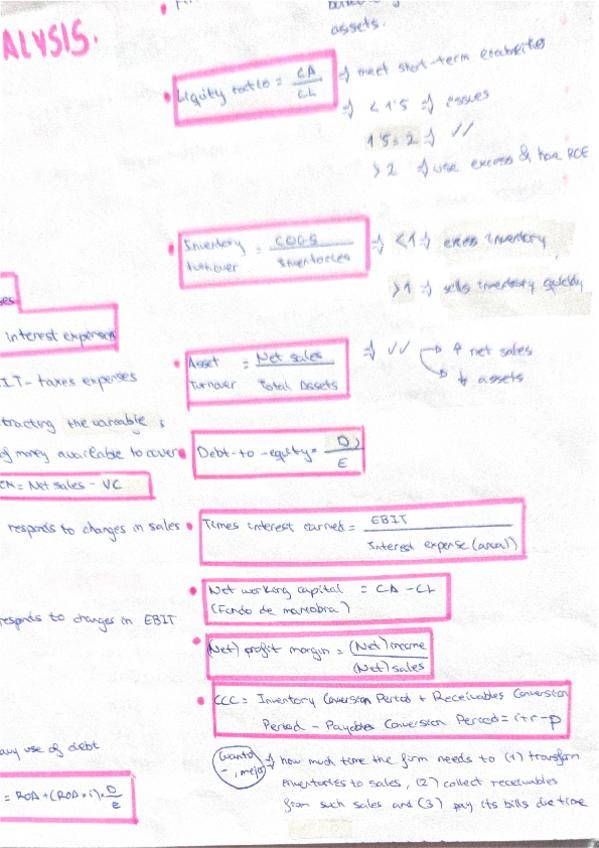 ALYSIS.
assets.
Liquity ratio = CA / CL => meet short-term
=> < 1'5 => issues
1'5 = 2 => ✓✓
> 2 => use excess & how ROE
Inventory turnover = COGS / Inventories => < 1 => excess inventory
> 1 => sells inventory quickly
ses
interest expenses
Asset Turnover = Net sales / Total Assets => ✓✓ net sales
assets
IT - taxes expenses
tracting the variable
of money available to cover
Debt-to-equity = D / E
CM = Net sales - VC
responds to changes in sales
Times interest earned = EBIT / Interest expense (anual)
Net working capital = CA - CL
(Fondo de maniobra)
responds to changes in EBIT
(Net) profit margin = (Net) income / (Net) sales
CCC = Inventory Conversion Period + Receivables Conversion
Period - Payables Conversion Period = i + r - p
any use of debt
= ROA + (ROA - i) · D / E
(cuanto -, mejor) => how much time the firm needs to (1) transform
inventories to sales, (2) collect receivables
from such sales and (3) pay its bills due time